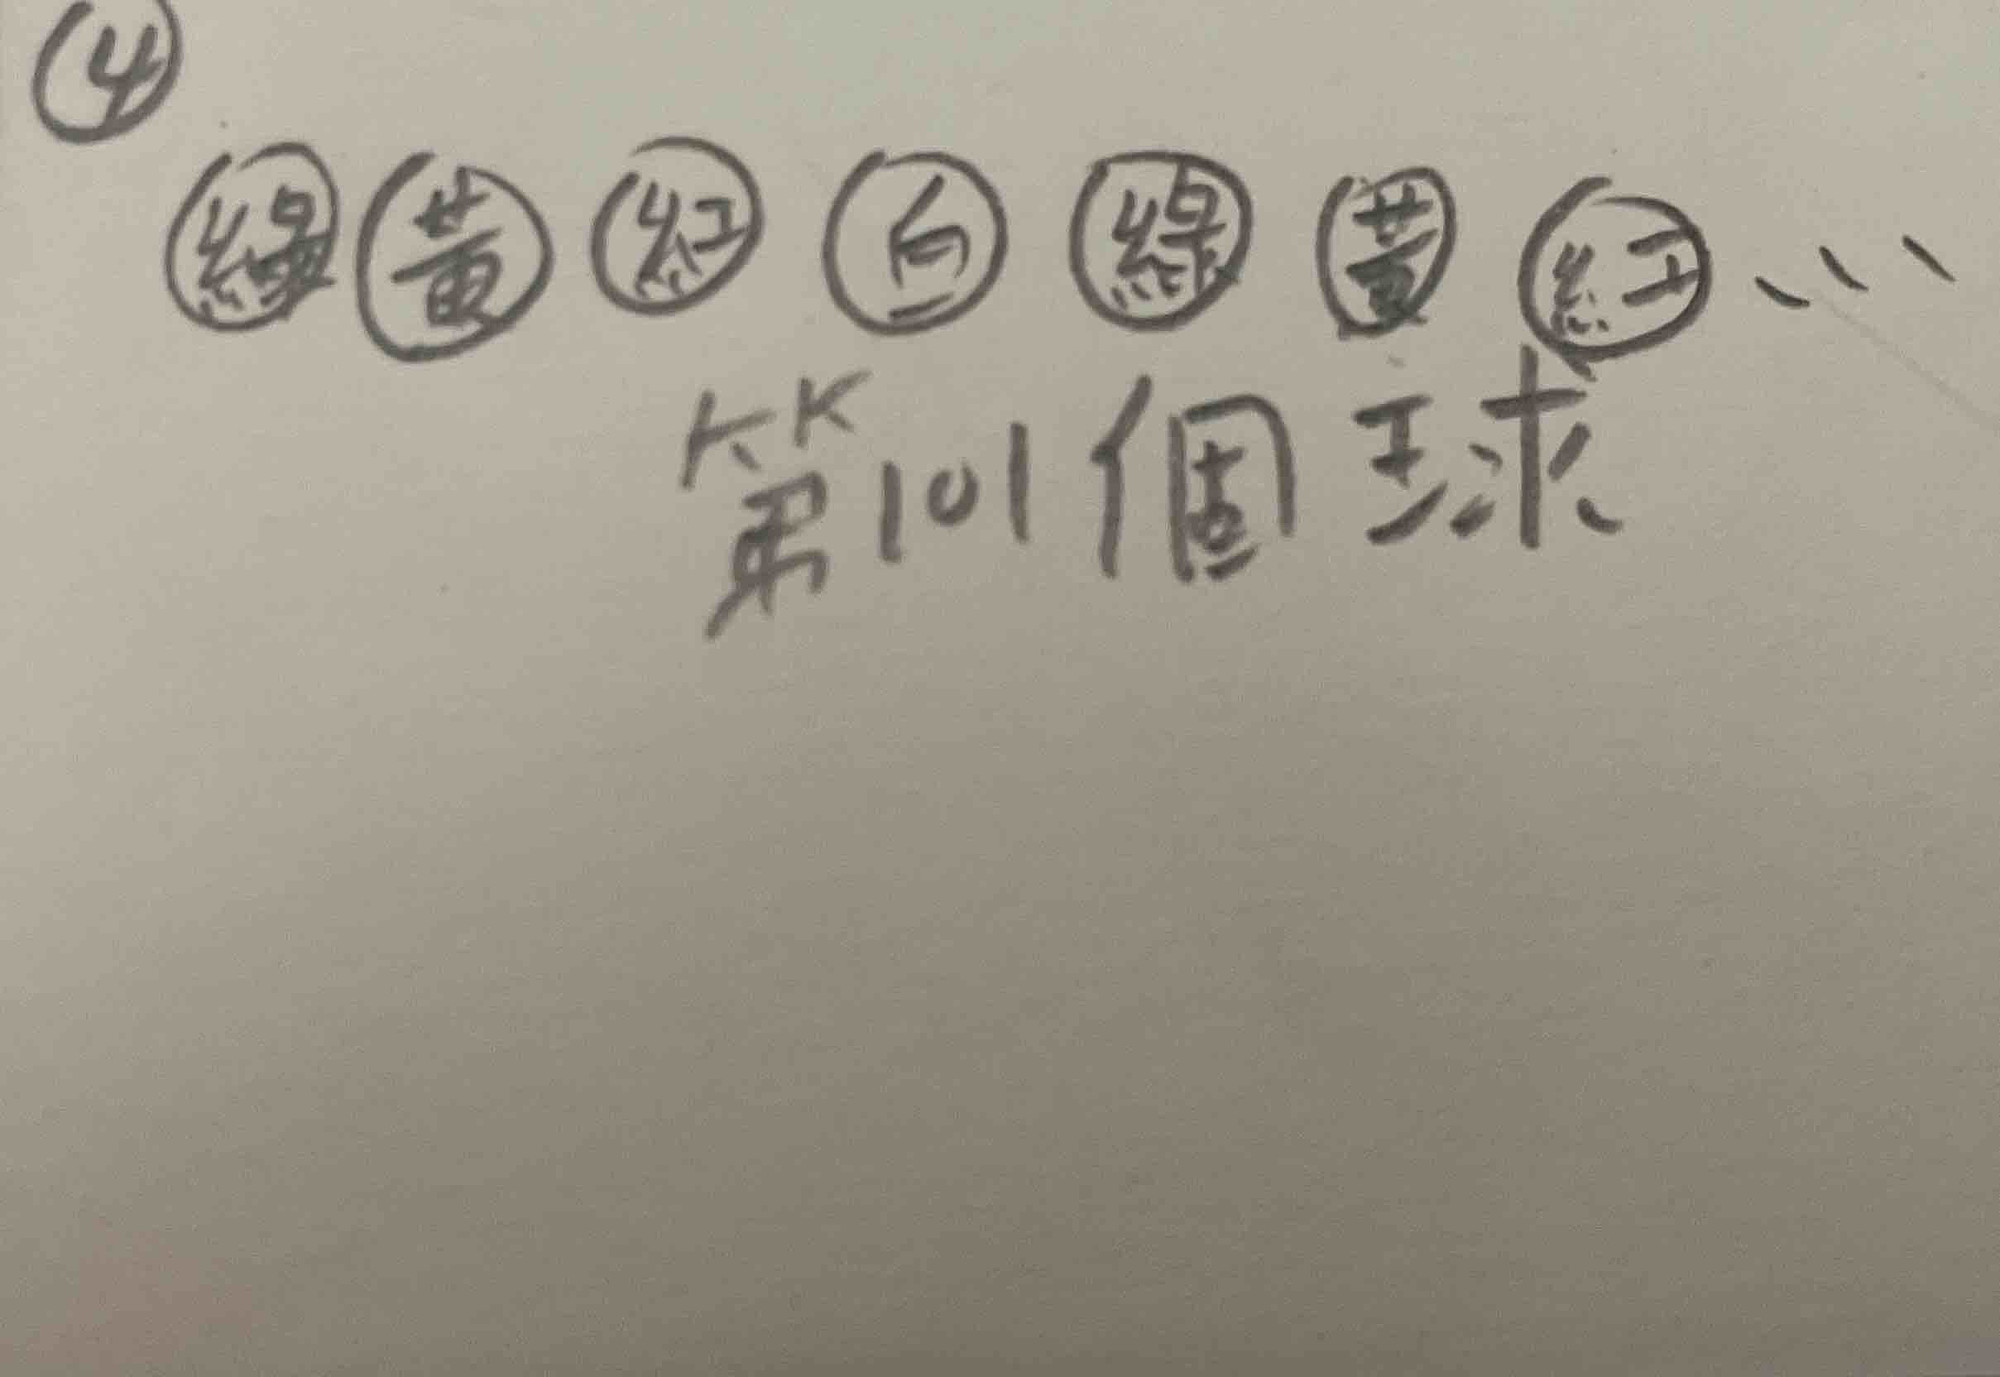 ④
綠 黃 紅 白 綠 黃 紅 ...
第101個球